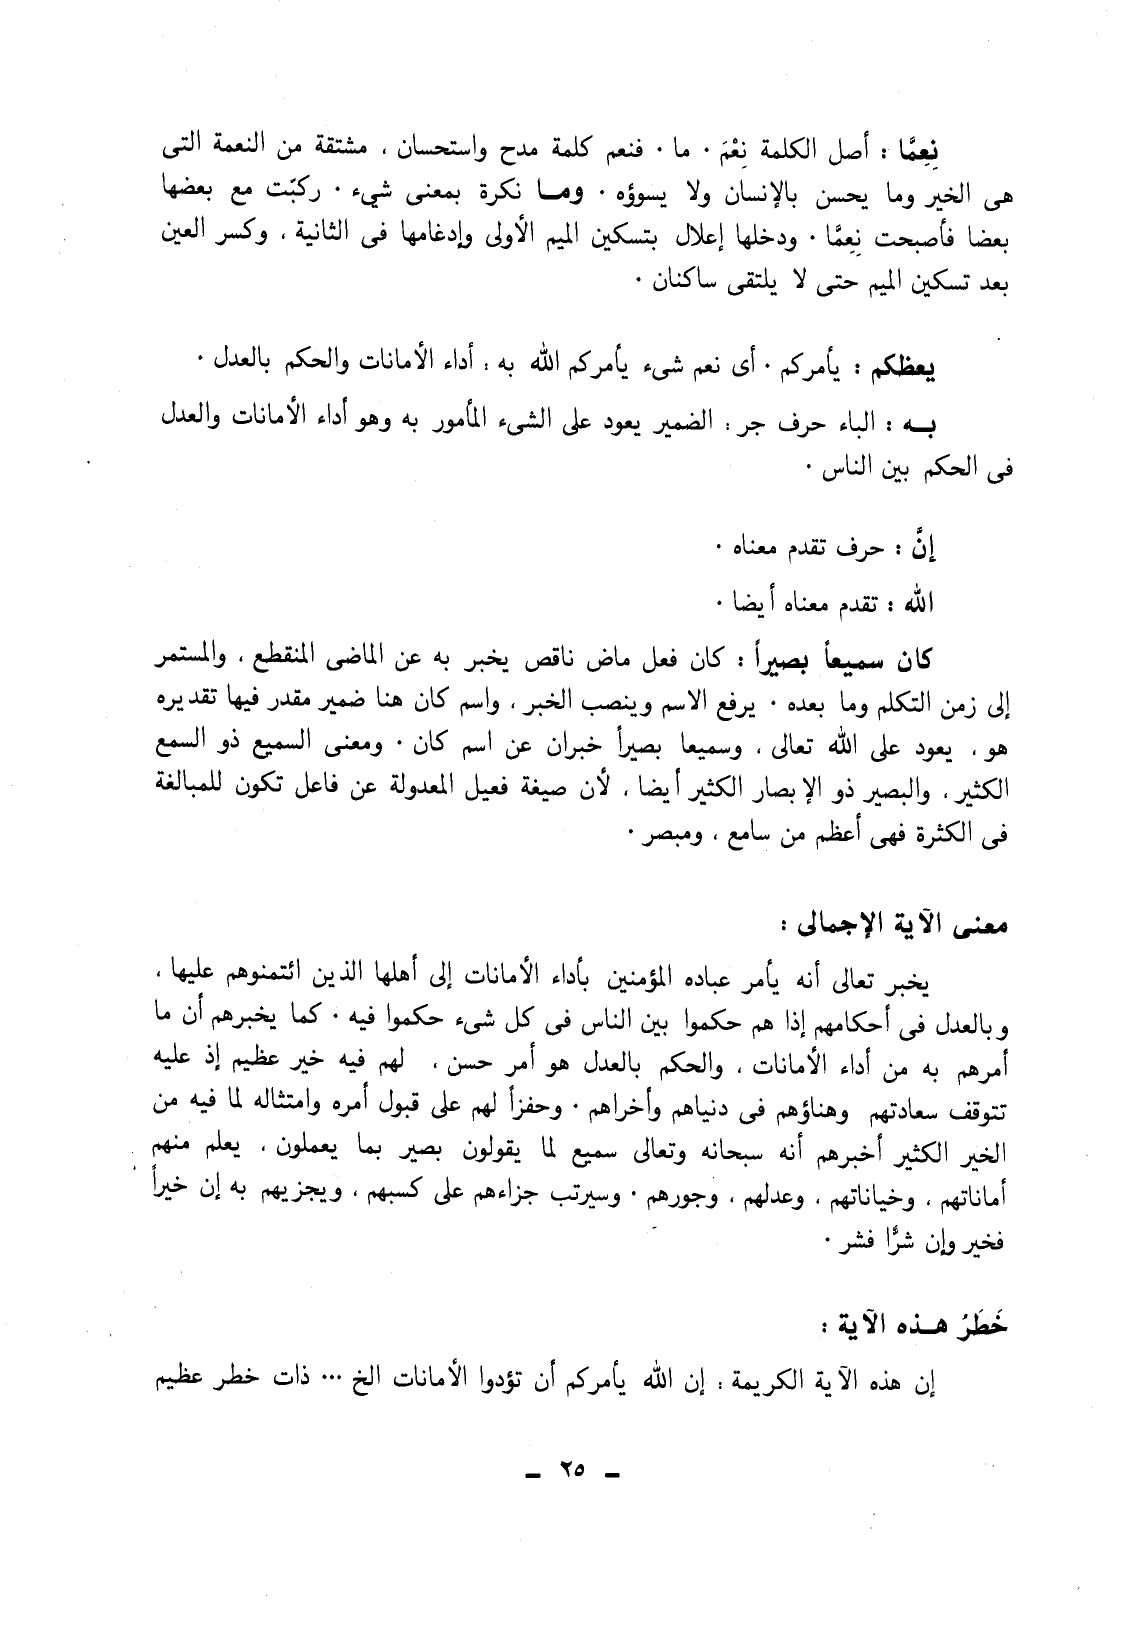 نِعِمَّا : أصل الكلمة نِعْمَ · ما · فنعم كلمة مدح واستحسان ، مشتقة من النعمة التى
هى الخير وما يحسن بالإنسان ولا يسوؤه · ومــا نكرة بمعنى شيء · ركبّت مع بعضها
بعضا فأصبحت نِعِمَّا · ودخلها إعلال بتسكين الميم الأولى وإدغامها فى الثانية ، وكسر العين
بعد تسكين الميم حتى لا يلتقى ساكنان ·
يعظكم : يأمركم · أى نعم شىء يأمركم الله به ، أداء الأمانات والحكم بالعدل ·
بــه : الباء حرف جر ، الضمير يعود على الشىء المأمور به وهو أداء الأمانات والعدل
فى الحكم بين الناس ·
إنَّ : حرف تقدم معناه ·
الله : تقدم معناه أيضا ·
كان سميعاً بصيراً : كان فعل ماض ناقص يخبر به عن الماضى المنقطع ، والمستمر
إلى زمن التكلم وما بعده · يرفع الاسم وينصب الخبر ، واسم كان هنا ضمير مقدر فيها تقديره
هو ، يعود على الله تعالى ، وسميعا بصيراً خبران عن اسم كان · ومعنى السميع ذو السمع
الكثير ، والبصير ذو الإبصار الكثير أيضا ، لأن صيغة فعيل المعدولة عن فاعل تكون للمبالغة
فى الكثرة فهى أعظم من سامع ، ومبصر ·
معنى الآية الإجمالى :
يخبر تعالى أنه يأمر عباده المؤمنين بأداء الأمانات إلى أهلها الذين ائتمنوهم عليها ،
وبالعدل فى أحكامهم إذا هم حكموا بين الناس فى كل شىء حكموا فيه · كما يخبرهم أن ما
أمرهم به من أداء الأمانات ، والحكم بالعدل هو أمر حسن ، لهم فيه خير عظيم إذ عليه
تتوقف سعادتهم وهناؤهم فى دنياهم وأخراهم · وحفزاً لهم على قبول أمره وامتثاله لما فيه من
الخير الكثير أخبرهم أنه سبحانه وتعالى سميع لما يقولون بصير بما يعملون ، يعلم منهم
أماناتهم ، وخياناتهم ، وعدلهم ، وجورهم · وسيرتب جزاءهم على كسبهم ، ويجزيهم به إن خيراً
فخير وإن شرًّا فشر ·
خَطَرُ هــذه الآية :
إن هذه الآية الكريمة ، إن الله يأمركم أن تؤدوا الأمانات الخ ··· ذات خطر عظيم
ــ ٢٥ ــ